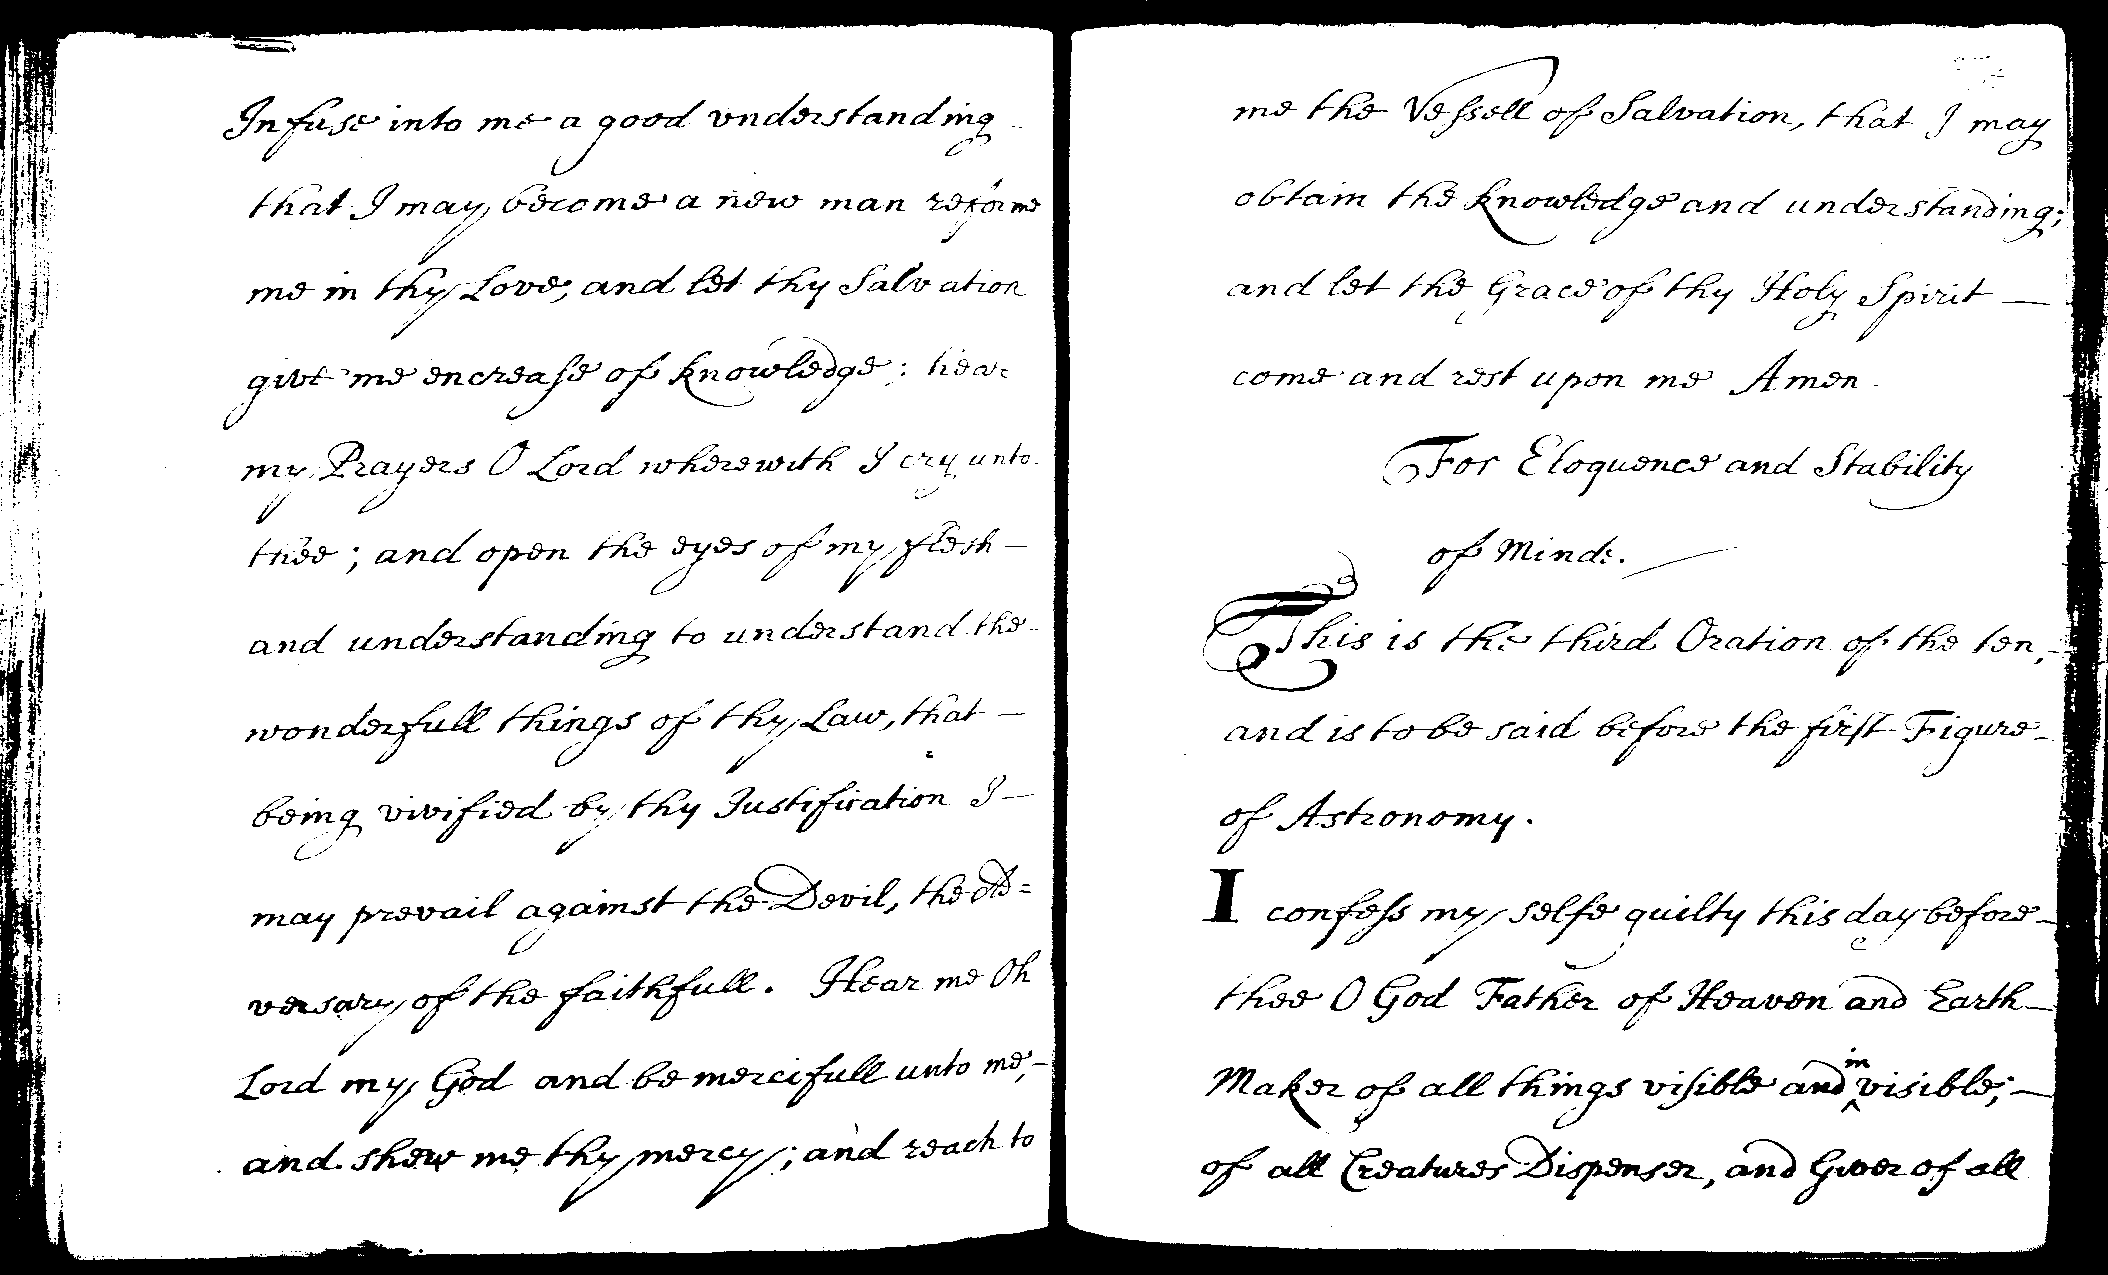 Infuse into me a good vnderstanding
that I may become a new man reforme
me in thy Love, and let thy Salvation
give me encrease of knowledge; hear
my Prayers O Lord wherewith I cry unto
thee; and open the eyes of my flesh —
and understanding to understand the
wonderfull things of thy Law, that —
being vivified by thy Justification I —
may prevail against the Devil, the Ad=
versary of the faithfull. Hear me Oh
Lord my God and be mercifull unto me; —
and shew me thy mercy; and reach to
me the Vessell of Salvation, that I may
obtain the knowledge and understanding;
and let the Grace of thy Holy Spirit —
come and rest upon me Amen.
For Eloquence and Stability
of Minde. —
This is the third Oration of the ten,
and is to be said before the first Figure
of Astronomy.
I confess my selfe guilty this day before
thee O God Father of Heaven and Earth
Maker of all things visible and invisible; —
of all Creatures Dispenser, and Giver of all